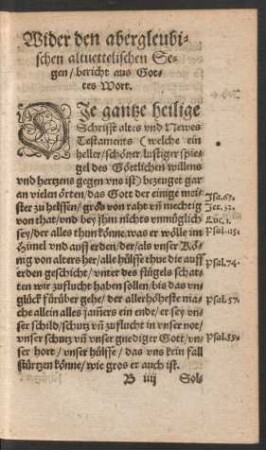 Wider den abergleubi-
schen altuettelischen Se-
gen / bericht aus Got-
tes Wort.
DIe gantze heilige
Schrifft altes vnd Newes
Testaments (welche ein
heller / schöner / lustiger spie-
gel des Göttlichen willens
vnd hertzens gegen vns ist) bezeuget gar
an vielen örten / das Gott der einige mei-
ster zu helffen / gros von raht vñ mechtig
von that / vnd bey jhm nichts vnmöglich
sey / der alles thun könne / was er wölle im
Himel vnd auff erden / der / als vnser Kö-
nig von alters her / alle hülffe thue die auff
erden geschicht / vnter des flügels schat-
ten wir zuflucht haben sollen / bis das vn-
glück fürüber gehe / der allerhöheste ma-
che allein alles jam̃ers ein ende / er sey vn-
ser schild / schutz vñ zuflucht in vnser not /
vnser schutz vñ vnser gnediger Gott / vn-
ser hort / vnser hülffe / das vns kein fall
stürtzen könne / wie gros er auch ist.
B iiij Sol-
Jsa. 63.
Jer. 32.
Luc. 1.
Psal. 115.
Psal. 74.
Psal. 57.
Psal. 59.